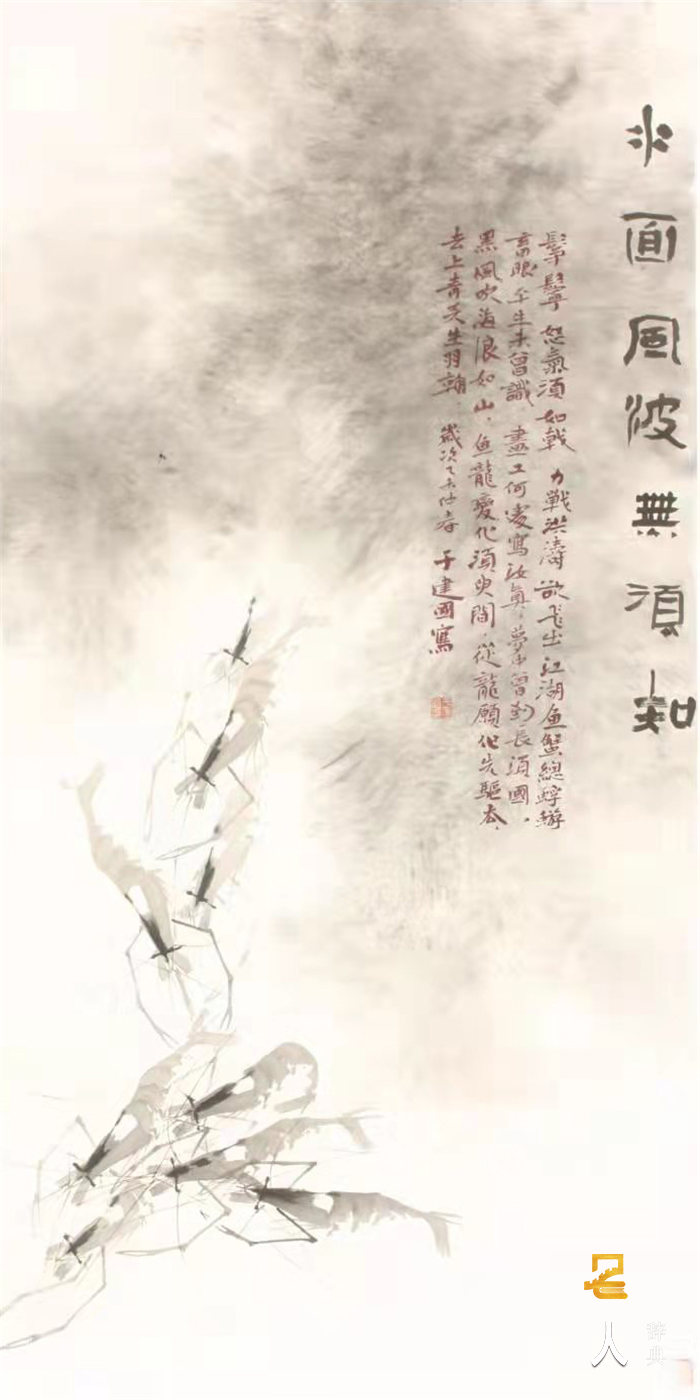 水面風波無須知
鬅鬙怒氣須如戟力戰洪濤欲飛出江湖魚蟹總蜉蝣
畜眼平生未曾識畫工何處寫汝真夢中曾到長須國
黑風吹海浪如山魚龍變化須臾間從龍願作先驅去
去上青天生羽翰歲次乙未仲春于建國寫
名人
辞典